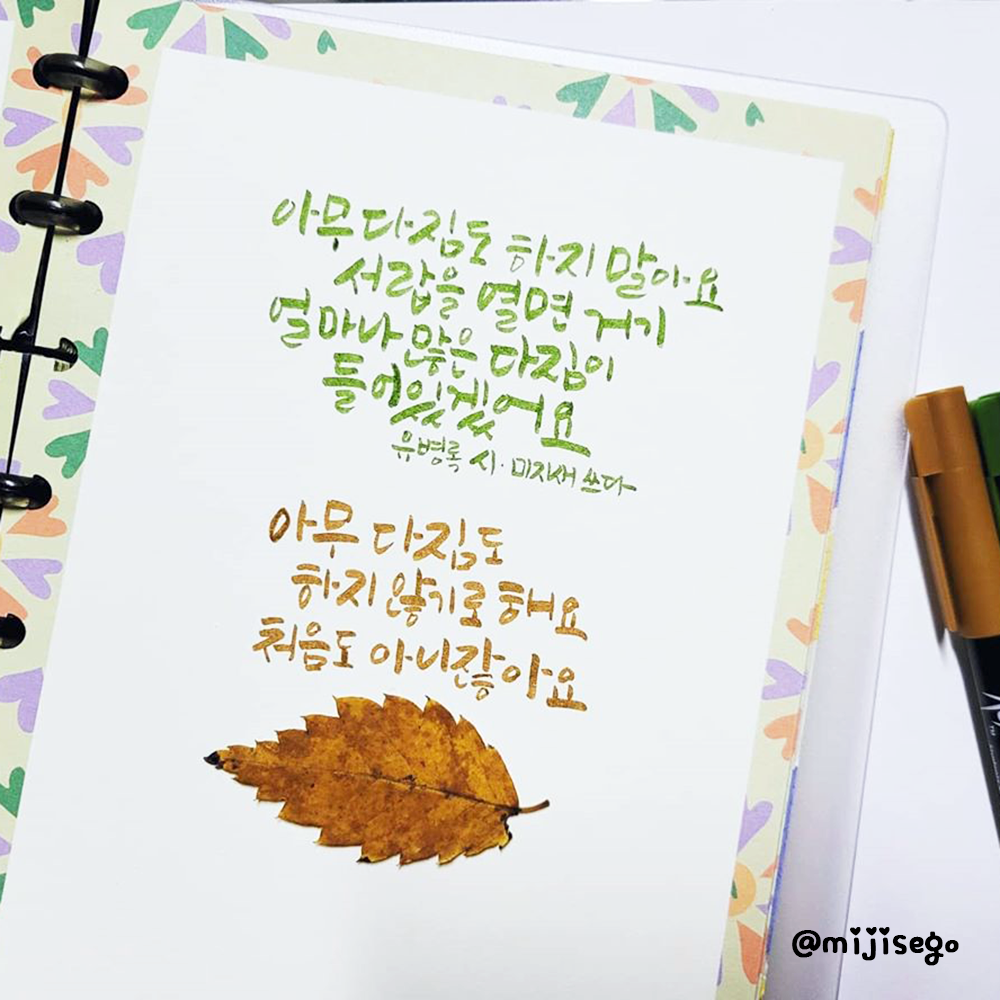 아무 다짐도 하지 말아요
서랍을 열면 거기
얼마나 많은 다짐이
들어있겠어요
유병록 시·미지새 쓰다
아무 다짐도
하지 않기로 해요
처음도 아니잖아요
@mijisego